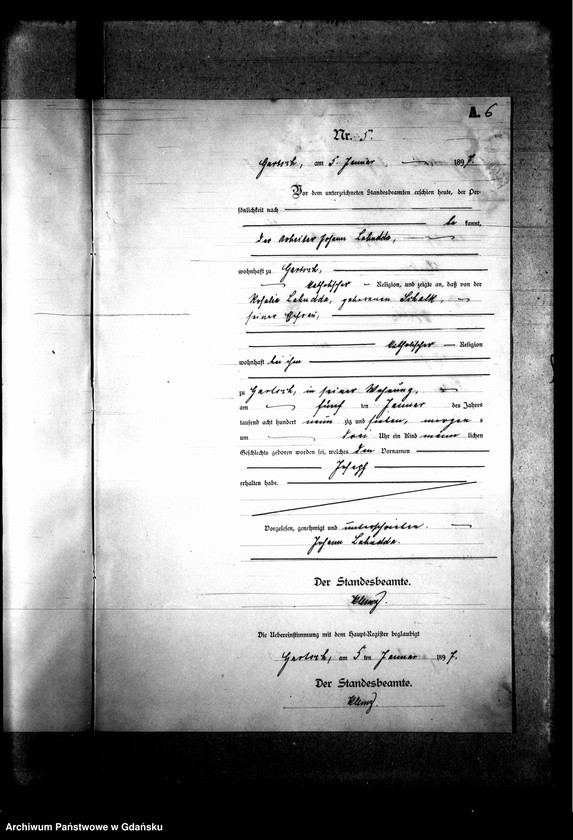 A. 6
Nr. 5.
am 5. Januar 1897.
Vor dem unterzeichneten Standesbeamten erschien heute, der Per-
sönlichkeit nach
be kannt,
der Arbeiter Johann
wohnhaft zu
katholischer Religion, und zeigte an, daß von der
Rosalie geborenen
seiner Ehefrau,
katholischer Religion
wohnhaft bei ihm
zu in seiner Wohnung,
am fünf ten Januar des Jahres
tausend acht hundert neun zig und sieben, morgens
um drei Uhr ein Kind männ lichen
Geschlechts geboren worden sei, welches den Vornamen
Joseph
erhalten habe.
Vorgelesen, genehmigt und unterschrieben.
Johann
Der Standesbeamte.
Die Uebereinstimmung mit dem Haupt-Register beglaubigt
am 5 ten Januar 1897.
Der Standesbeamte.
Archiwum Państwowe w Gdańsku